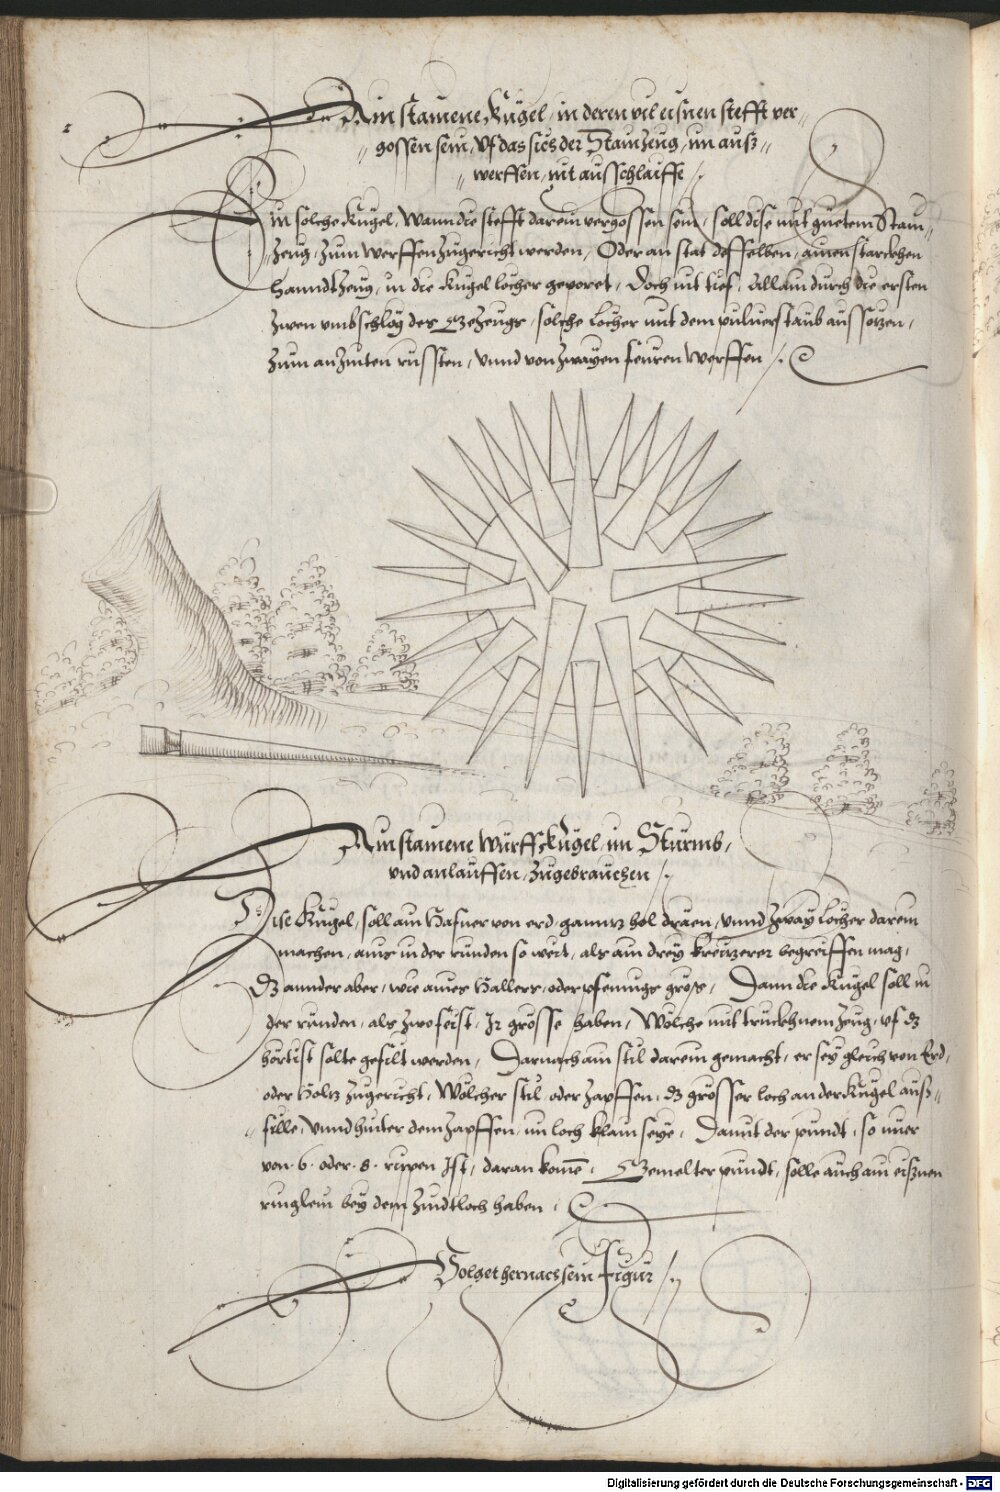 Ain stainene Kugel, in deren vil eisnen stefft ver„
„gossen sein, Uf das sies der Stainzeug, im auß„
„werffen, nit ausschlaiffe /.
Ein solche Kugel, Wann die stefft darein vergossen sein, soll dise mit guetem Stain„
„Zeug, zum werffen zugericht werden, Oder an stat desselben, ainen starckhen
Hanndtzeug, in die Kugel löcher geporet, Doch nit tief, Allain durch die ersten
Zwen umbschlög des Gezeugs, solche löcher mit dem puluerstaub aussetzen,
Zum anzinten russten, Unnd von zwayen feuren werffen /.
Ain stainene Würffkugel, im Sturmb,
und anlauffen, zugebrauchen /.
Dise Kugel, soll ain Hafner von erd, gannz hol dräen, Unnd zway löcher darein
machen, ains in der runden so weit, als ain drey kreüzerer begreiffen mag,
Dz annder aber, wie aines Hallers, oder pfennigs gross, Dann die Kugel soll in
der runden, als zwo feist, Ir grösse haben, Wölche mit truckhnem zeug, uf dz
hörtist solte gefilt werden, Darnach ain stil darein gemacht, er sey gleich von Erd,
oder Holtz zugericht, Wölcher stil oder zapffen, dz grösser loch an der Kugel auß„
„fille, Unnd hinter dem zapffen, im loch klain seye, Damit der pundt, so mer
von 6 oder 8 rupen Ist, daran komē, Gemelter pundt, solle auch ain eißnen
ringlein bey dem zindtloch haben,
Volget hernach sein Figur /.
Digitalisierung gefördert durch die Deutsche Forschungsgemeinschaft - DFG